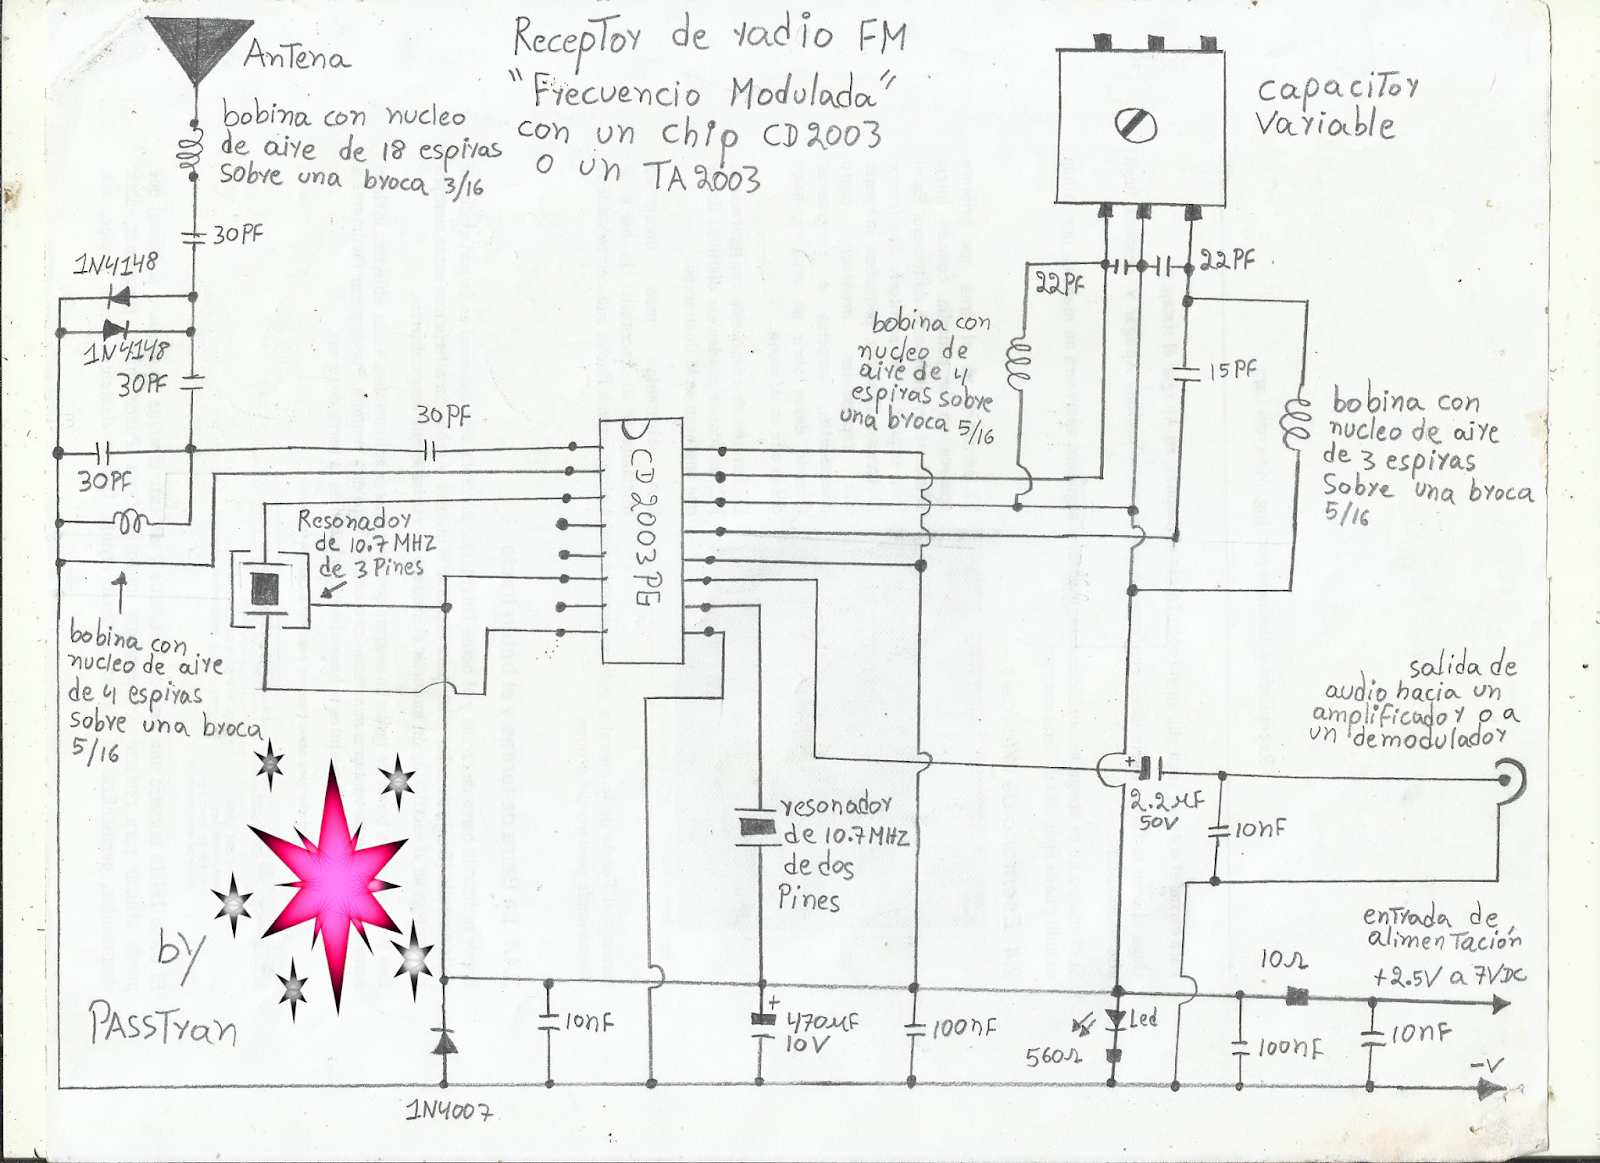 Receptor de radio FM
"Frecuencio Modulada"
con un chip CD2003
o un TA2003
Antena
bobina con nucleo
de aire de 18 espiras
sobre una broca 3/16
30PF
1N4148
1N4148
30PF
30PF
30PF
Resonador
de 10.7 MHZ
de 3 Pines
bobina con
nucleo de aire
de 4 espiras
sobre una broca
5/16
CD2003PG
capacitor
variable
22PF
22PF
bobina con
nucleo de
aire de 4
espiras sobre
una broca 5/16
15PF
bobina con
nucleo de aire
de 3 espiras
Sobre una broca
5/16
salida de
audio hacia un
amplificador o a
un demodulador
+
2.2µF
50V
10nF
resonador
de 10.7MHZ
de dos
Pines
entrada de
alimentación
+2.5V a 7VDC
10Ω
by
PASSTran
10nF
+
470µF
10V
100nF
Led
560Ω
100nF
10nF
-V
1N4007